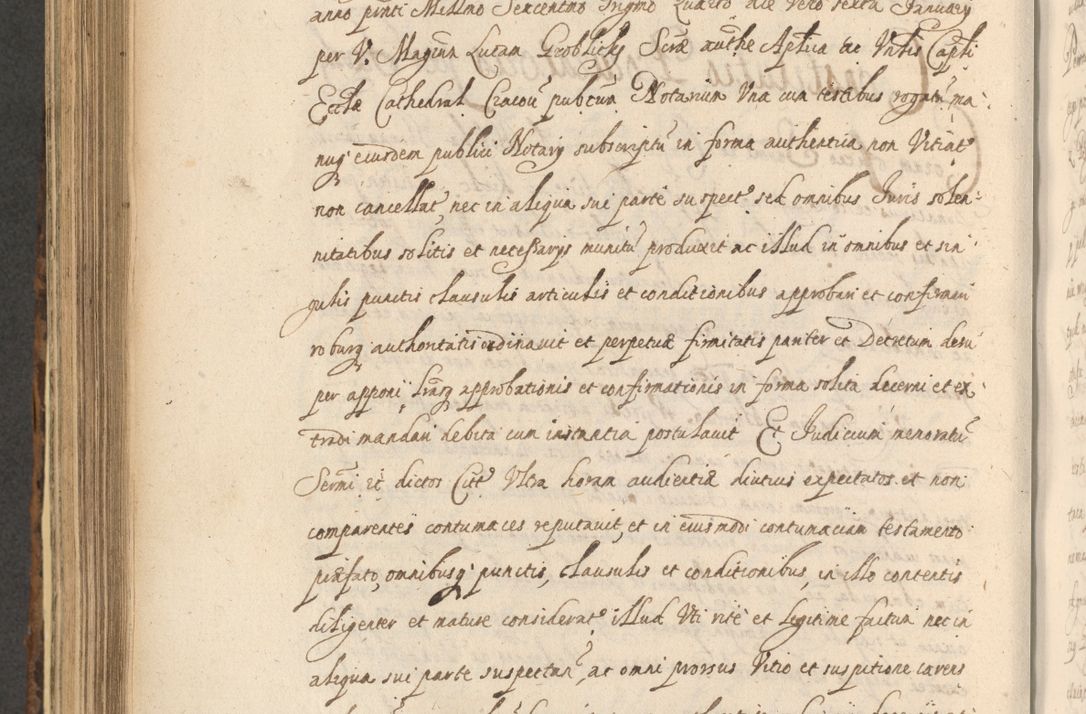 anno prnti Millmo Sexcentmo Trigmo Quarto die Vero sexta January
per V. Magrum Lucam Groblicky Scræ authe Aplica ac Vnlis Capli
Ecclæ Cathedral Cracou pubcum Notarium Vna cum testibus rogatu ma
nuq eiusdem publici Notary subscriptu in forma authentica non Vitiat
non cancellat, nec in aliqua sui parte suspect sed omnibus Iuris solen
nitatibus solitis et necessarys munitu produxit ac illud in omnibus et sin
gulis punctis clausulis articulis et conditionibus approbari et confirmari
roburq authoritatis ordinauit et perpetuæ firmitatis pariter et Decretum desu
per apponi lrasq approbationis et confirmationis in forma solita decerni et ex
tradi mandari debita cum instantia postulauit Et Iudicium memoratu
Sermi et dictos Citt Vltra horam audientiæ diutius expectatos et non
comparentes contumaces reputauit, et in eiusmodi contumaciam testamento
præfato, omnibusq punctis, clausulis et conditionibus, in illo contentis
diligenter et mature considerat illud Vti rite et legitime factum nec in
aliqua sui parte suspectum, ac omni prorsus Vitio et suspitione carens